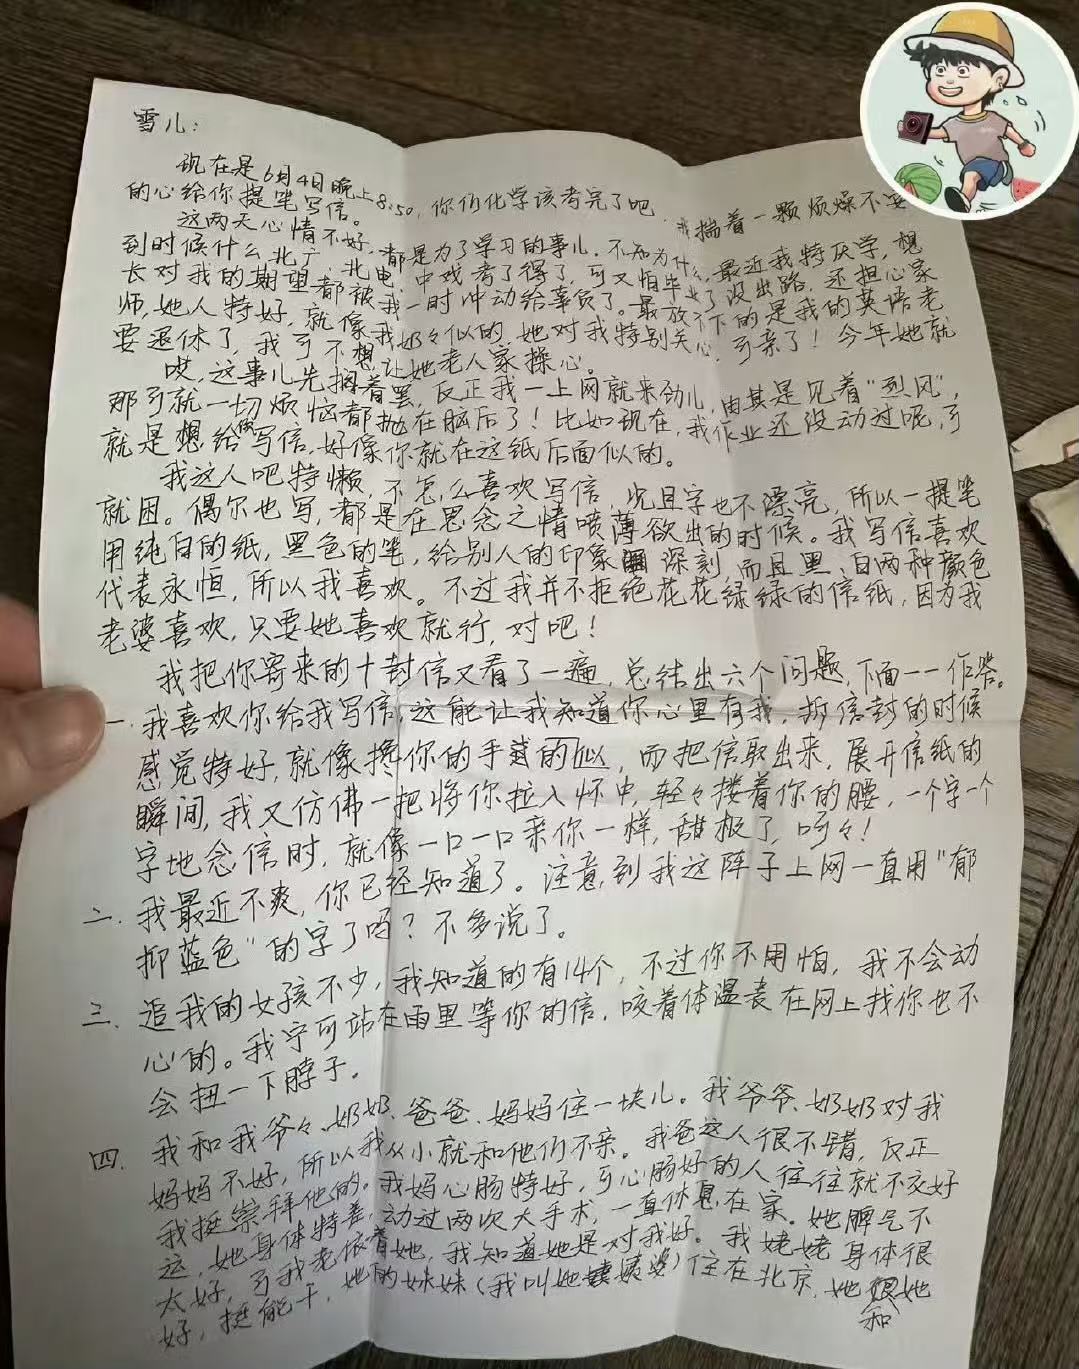 雪儿：
现在是6月4日晚上8:50，你们化学该考完了吧，我揣着一颗烦燥不安
的心给你提笔写信。
这两天心情不好，都是为了学习的事儿，不知为什么，最近我特厌学，想
到时候什么北广、北电、中戏考了得了，可又怕毕业了没出路，还担心家
长对我的期望都被我一时冲动给辜负了。最放不下的是我的英语老
师，她人特好，就像我奶々似的，她对我特别关心，可亲了！今年她就
要退休了，我可不想让她老人家操心。
哎，这事儿先搁着罢，反正我一上网就来劲儿，由其是见着“烈风”，
那可就一切烦恼都抛在脑后了！比如现在，我作业还没动过呢，可
就是想给你写信，好像你就在这纸后面似的。
我这人吧特懒，不怎么喜欢写信，况且字也不漂亮，所以一提笔
就困。偶尔也写，都是在思念之情喷薄欲出的时候。我写信喜欢
用纯白的纸，黑色的笔，给别人的印象深刻，而且黑、白两种颜色
代表永恒，所以我喜欢。不过我并不拒绝花花绿绿的信纸，因为我
老婆喜欢，只要她喜欢就行，对吧！
我把你寄来的十封信又看了一遍，总结出六个问题，下面一一作答。
一、我喜欢你给我写信，这能让我知道你心里有我，拆信封的时候
感觉特好，就像搀你的手的似，而把信取出来，展开信纸的
瞬间，我又仿佛一把将你拉入怀中，轻々搂着你的腰，一个字一个
字地念信时，就像一口一口亲你一样，甜极了，呵々！
二、我最近不爽，你已经知道了。注意到我这阵子上网一直用“郁
抑蓝色”的字了吗？不多说了。
三、追我的女孩不少，我知道的有14个，不过你不用怕，我不会动
心的。我宁可站在雨里等你的信，咬着体温表在网上找你也不
会扭一下脖子。
四、我和我爷々、奶奶、爸爸、妈妈住一块儿。我爷爷、奶奶对我
妈妈不好，所以我从小就和他们不亲。我爸这人很不错，反正
我挺崇拜他的。我妈心肠特好，可心肠好的人往往就不交好
运，她身体特差，动过两次大手术，一直休息在家。她脾气不
太好，可我老依着她，我知道她是对我好。我姥姥身体很
好，挺能干，她的妹妹（我叫她姨婆）住在北京，她和她